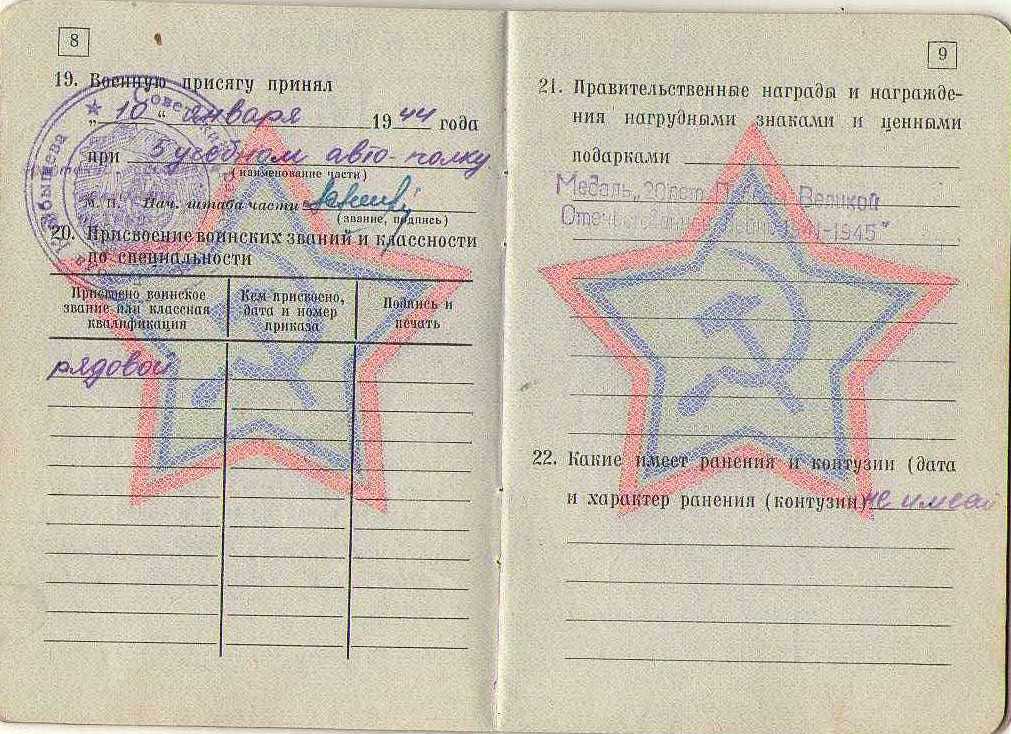 8
19. Военную присягу принял
„ 10 “ января 1944 года
при 5 учебном авто-полку
(наименование части)
М. П. Нач. штаба части
(звание, подпись)
20. Присвоение воинских званий и классности
по специальности
Присвоено воинское
звание или классная
квалификация
Кем присвоено,
дата и номер
приказа
Подпись и
печать
рядовой
9
21. Правительственные награды и награжде-
ния нагрудными знаками и ценными
подарками
Медаль „30 лет Победы Великой
Отечественной войне 1941-1945"
22. Какие имеет ранения и контузии (дата
и характер ранения (контузии) не имеет